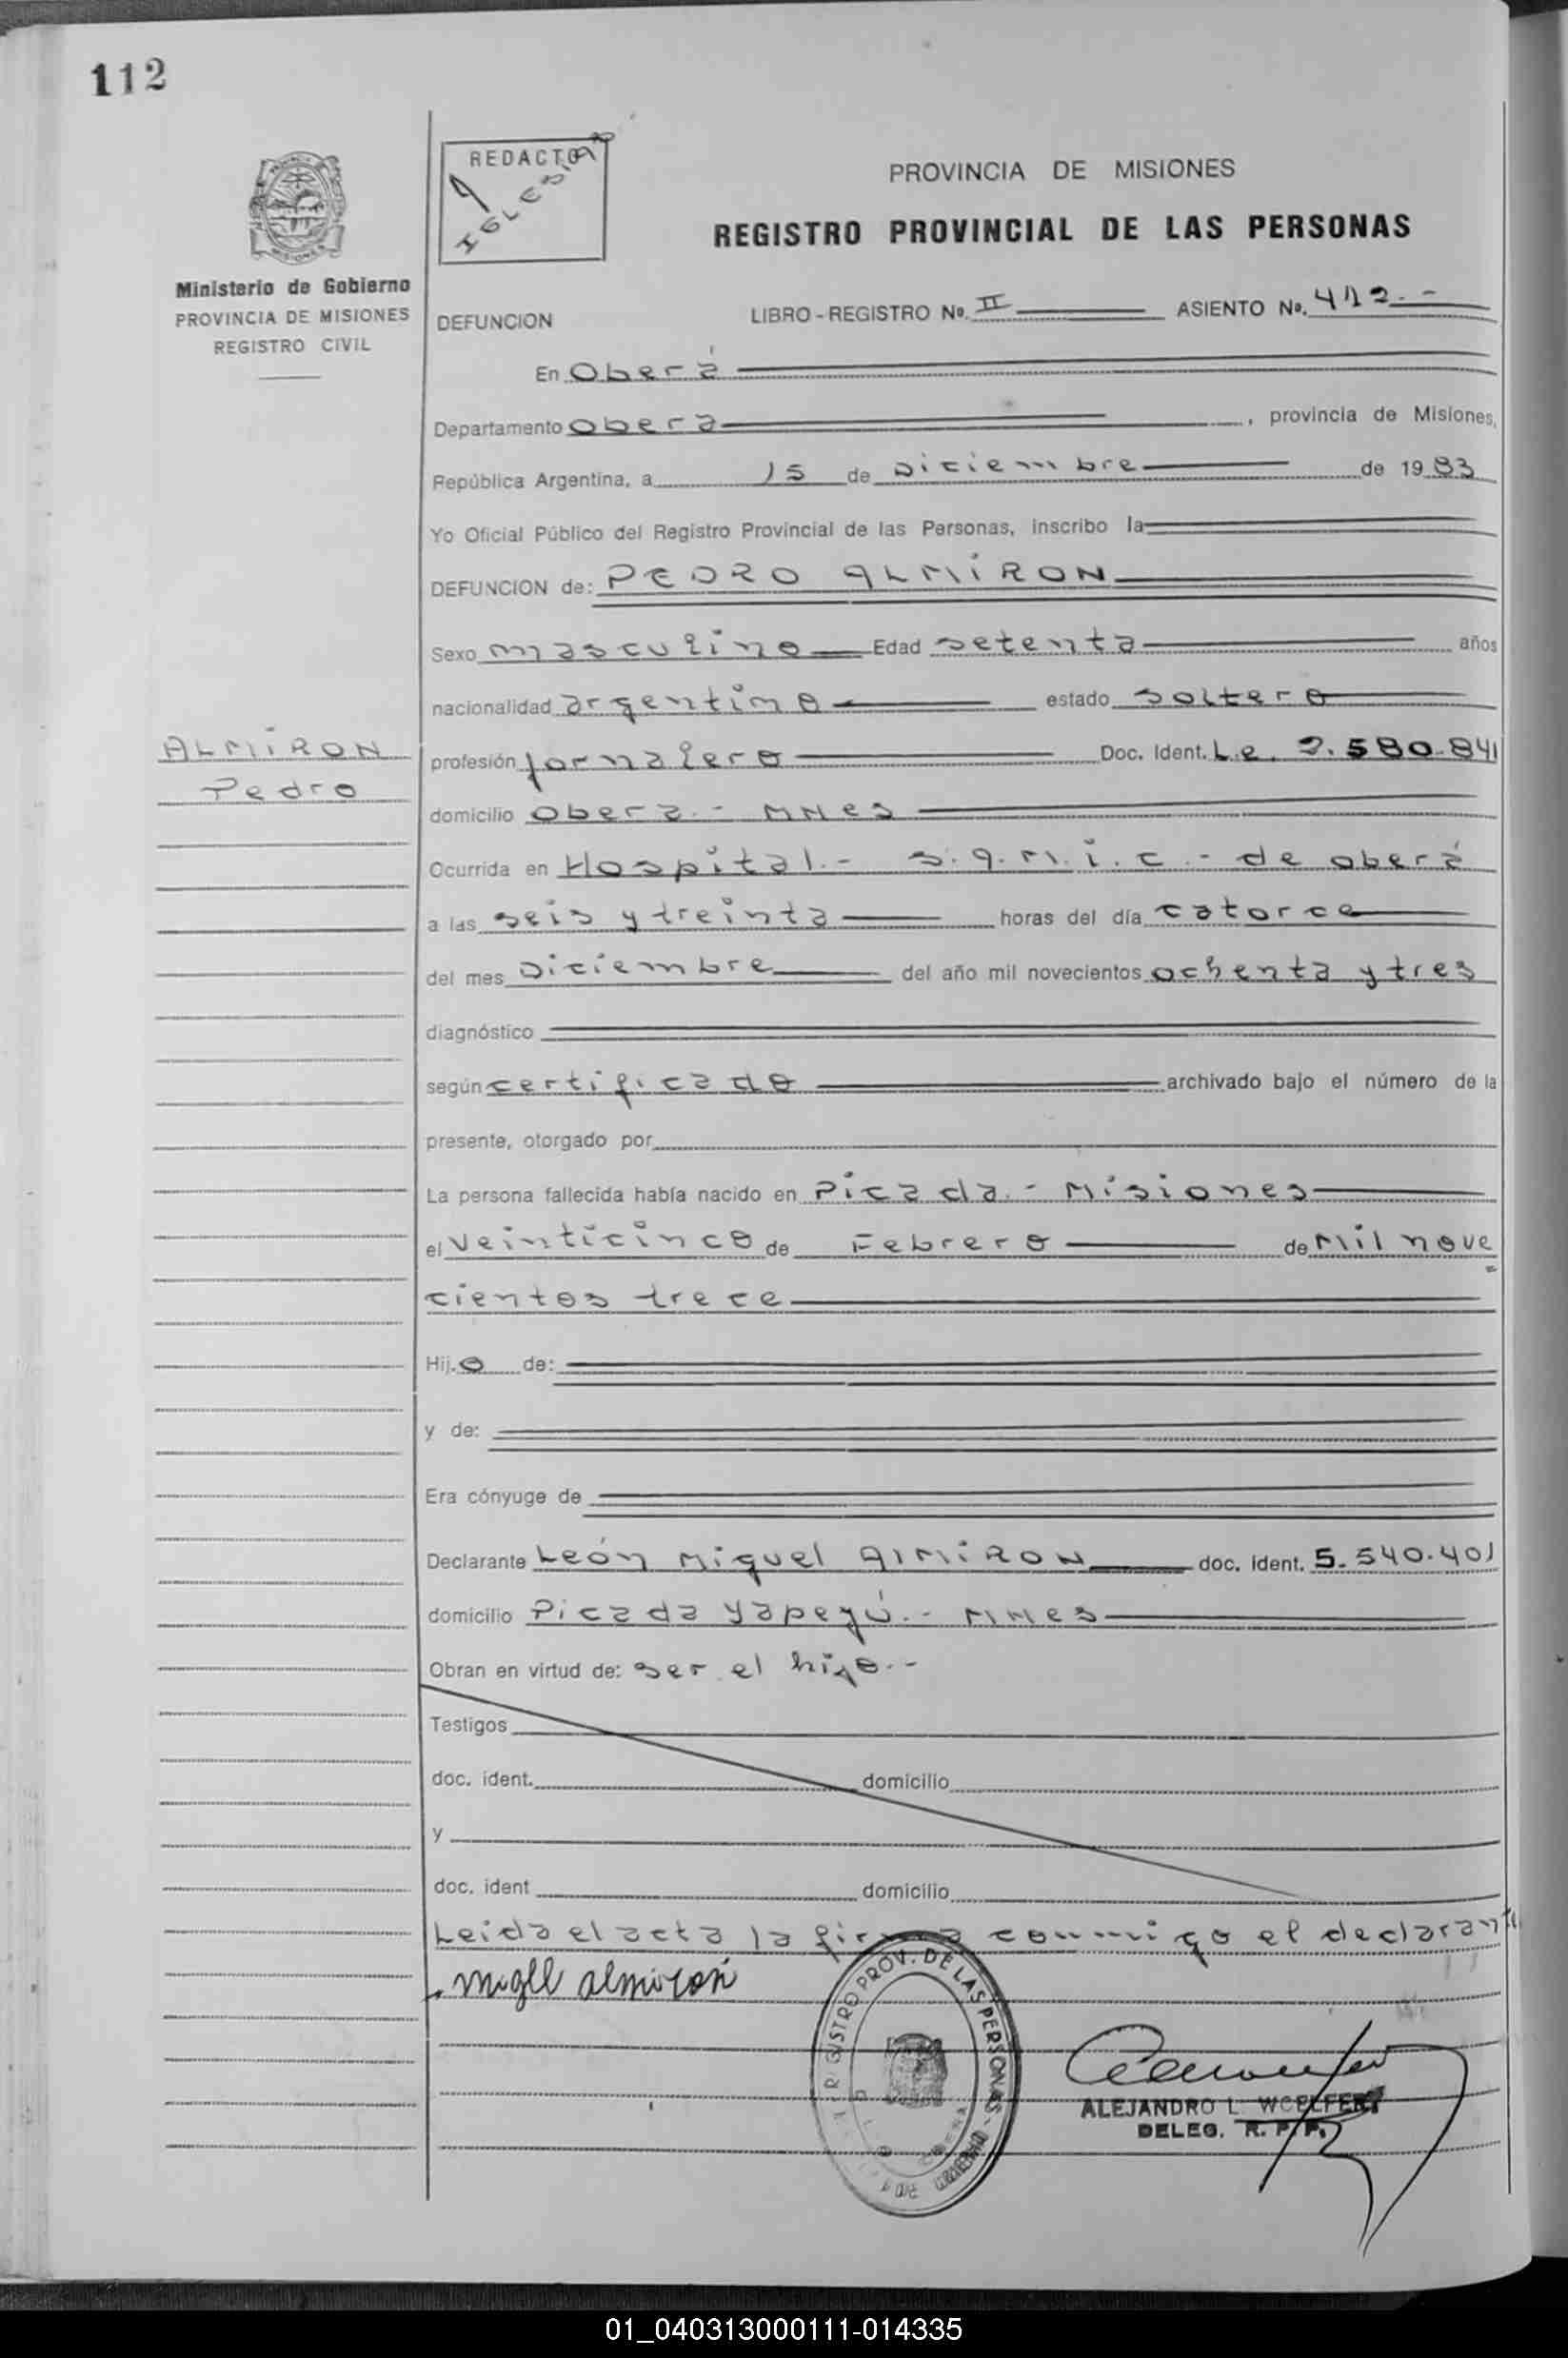 112
REDACTOR
IGLESIAS
PROVINCIA DE MISIONES
REGISTRO PROVINCIAL DE LAS PERSONAS
Ministerio de Gobierno
PROVINCIA DE MISIONES
REGISTRO CIVIL
DEFUNCION LIBRO-REGISTRO No. II ASIENTO No. 412.-
En Oberá
Departamento Oberá, provincia de Misiones,
República Argentina, a 15 de Diciembre de 1983
Yo Oficial Público del Registro Provincial de las Personas, inscribo la
DEFUNCION de: PEDRO ALMiRON
Sexo masculino Edad setenta años
nacionalidad argentino estado soltero
ALMiRON
Pedro
profesión jornalero Doc. Ident. L.e. 2.580.841
domicilio Oberá.- MNes
Ocurrida en Hospital.- S.A.M.i.c.- de oberá
a las seis y treinta horas del día catorce
del mes Diciembre del año mil novecientos ochenta y tres
diagnóstico
según certificado archivado bajo el número de la
presente, otorgado por
La persona fallecida había nacido en Picada.- Misiones
el veinticinco de Febrero de Mil nove=
cientos trece
Hij.o de:
y de:
Era cónyuge de
Declarante León Miguel AlMiRON doc. ident. 5.540.401
domicilio Picada Yapeyú.- MNes
Obran en virtud de: ser el hijo.-
Testigos
doc. ident. domicilio
y
doc. ident domicilio
Leida el acta la firma conmigo el declarante
migel almirón
REGISTRO PROV. DE LAS PERSONAS
ALEJANDRO L. WOELFERT
DELEG. R. P. P.
01_040313000111-014335